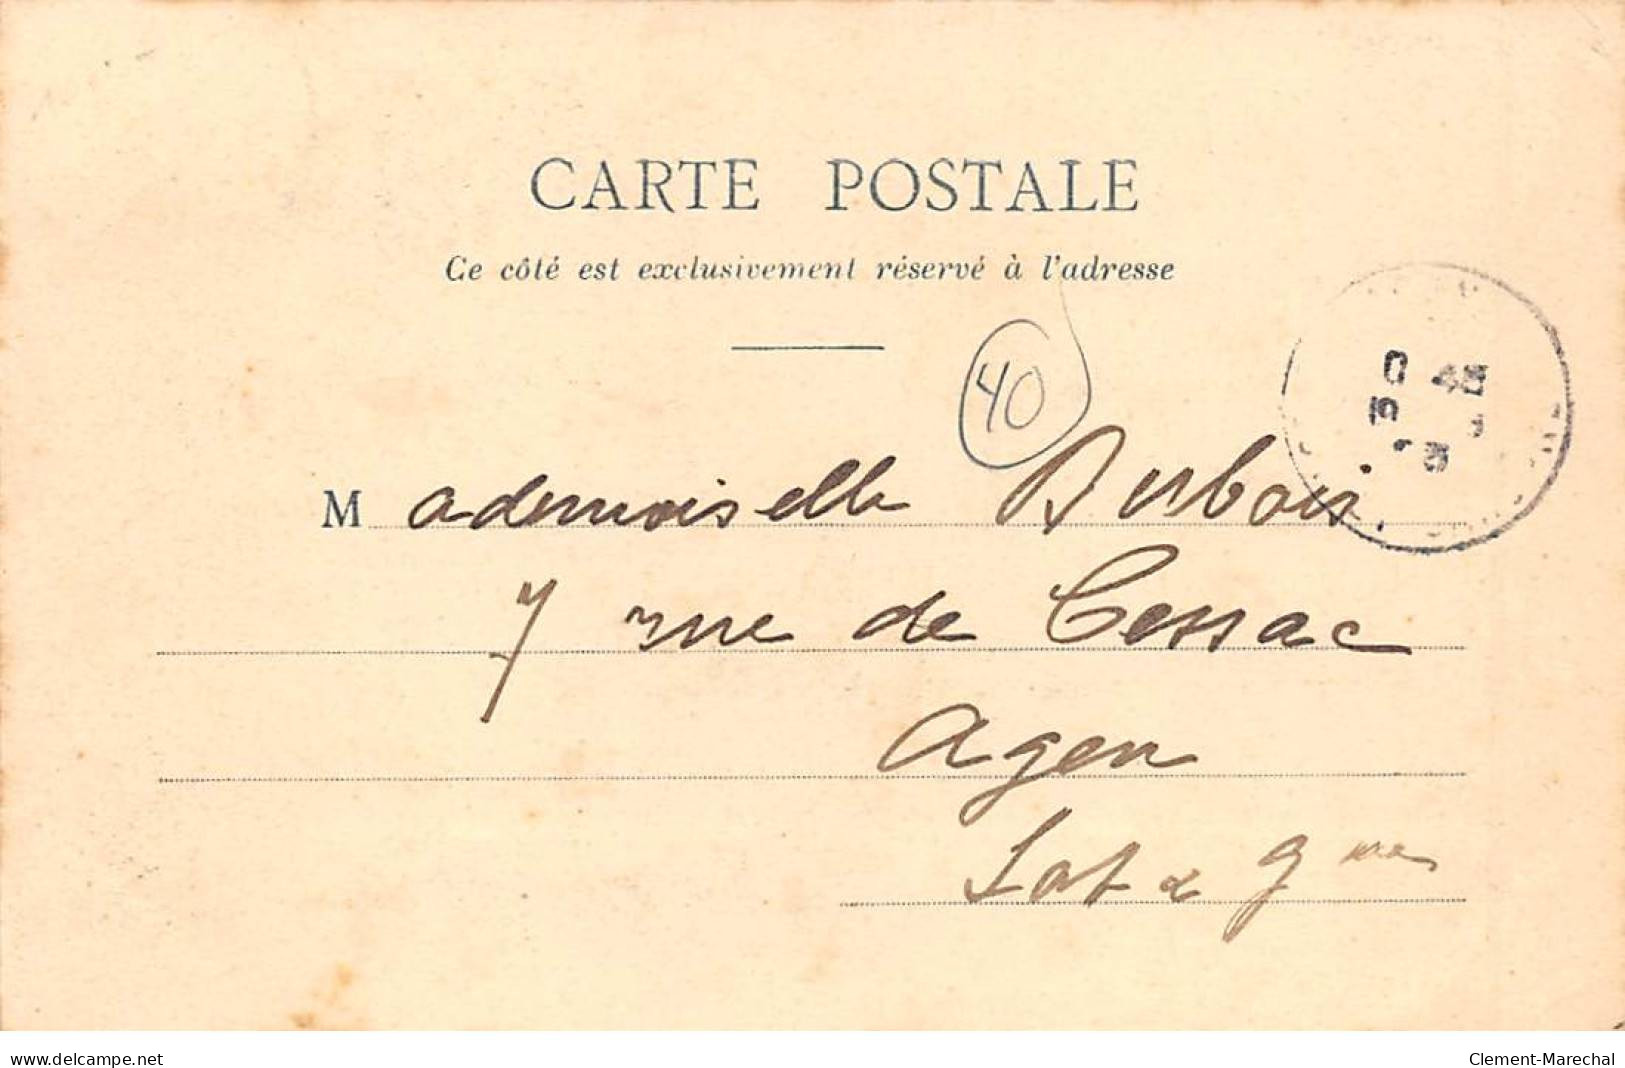 CARTE POSTALE
Ce côté est exclusivement réservé à l'adresse
40
Mademoiselle
7 rue de Cessac
Agen
Lot & Gnne
www.delcampe.net
Clement-Marechal